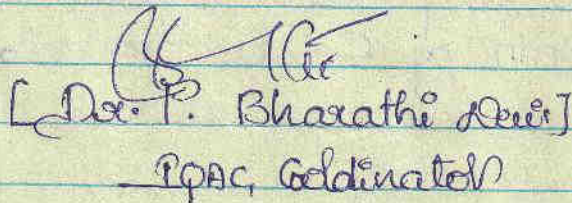 [Dr. P. Bharathi Devi]
IQAC, Coordinator